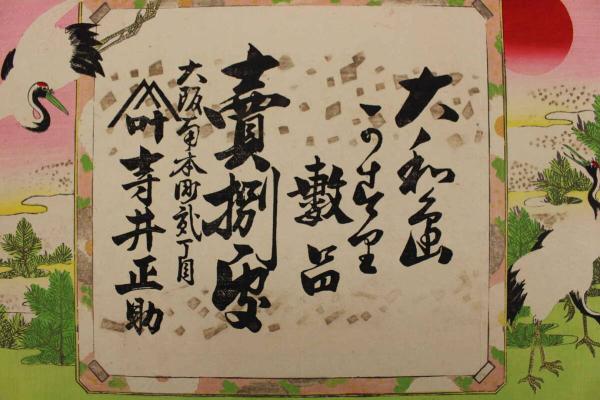 大和
かす里
數品
賣捌處
大阪南本町貳丁目
叶 寺井正助